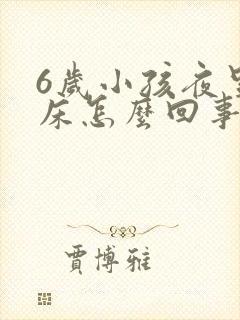 6歲小孩夜
床怎麼回事
賈博雅